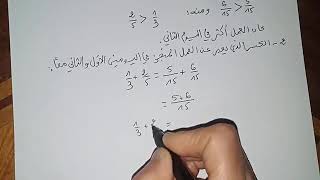 2/5 > 1/3 ومنه: 6/15 > 5/15
فإن العمل أكثر في اليوم الثاني
2 - الكسر الذي يعبر عن العمل المنجز في اليومين الأول والثاني معا:
1/3 + 2/5 = 5/15 + 6/15
= 5+6/15
1/3 + 2 =